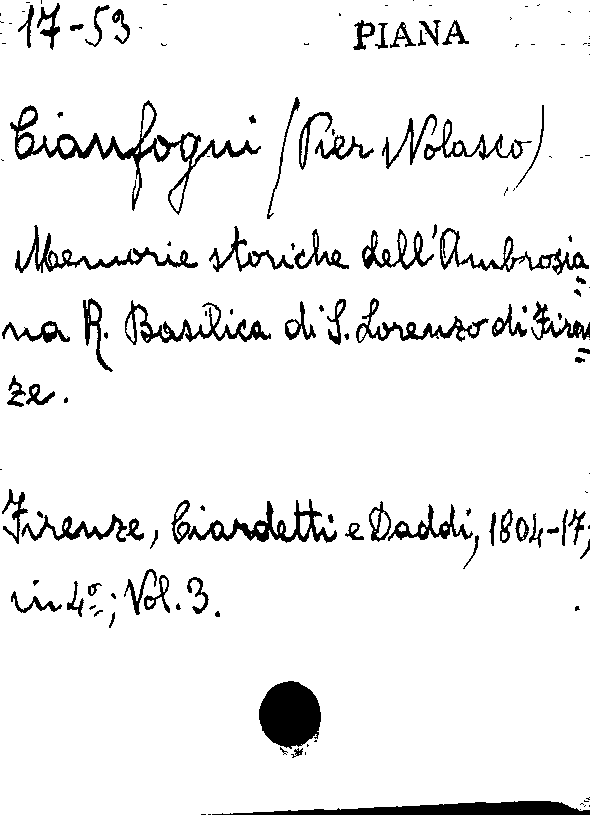 17-53 PIANA
Cianfogni (Pier Nolasco)
Memorie storiche dell'Ambrosia=
na R. Basilica di S. Lorenzo di Firen=
ze.
Firenze, Ciardetti e Daddi, 1804-17;
in 4º; Vol. 3.